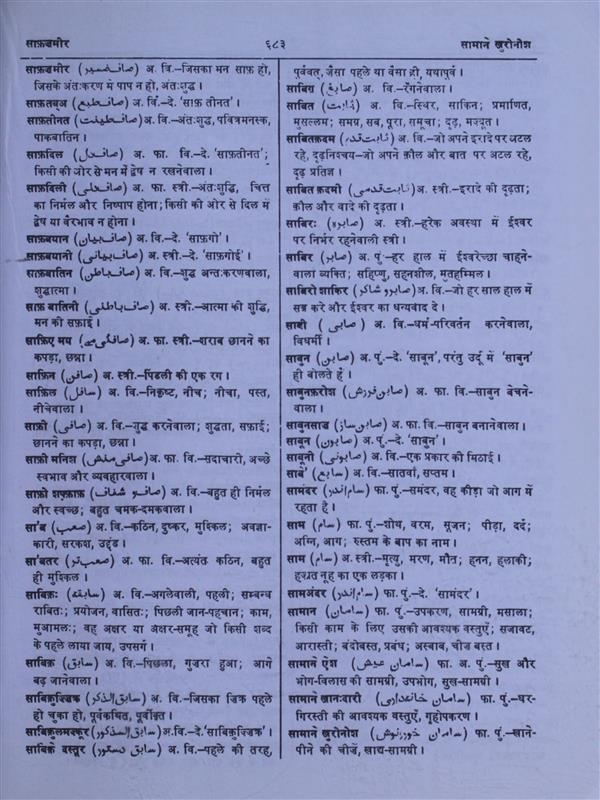 साफ़ज़मीर
६८३
सामाने ख़ुरोनोश
साफ़ज़मीर (صاف ضمیر) अ. वि.–जिसका मन साफ़ हो,
जिसके अंतःकरण में पाप न हो, अंतःशुद्ध।
साफ़तबअ (صاف طبع) अ. वि.–दे. 'साफ़ तीनत'।
साफ़तीनत (صاف طینت) अ. वि.–अंतःशुद्ध, पवित्रमनस्क,
पाकबातिन।
साफ़दिल (صاف دل) अ. फा. वि.–दे. 'साफ़तीनत';
किसी की ओर से मन में द्वेष न रखनेवाला।
साफ़दिली (صاف دلی) अ. फा. स्त्री.–अंतःशुद्धि, चित्त
का निर्मल और निष्पाप होना; किसी की ओर से दिल में
द्वेष या वैरभाव न होना।
साफ़बयान (صاف بیان) अ. वि.–दे. 'साफ़गो'।
साफ़बयानी (صاف بیانی) अ. स्त्री.–दे. 'साफ़गोई'।
साफ़बातिन (صاف باطن) अ. वि.–शुद्ध अन्तःकरणवाला,
शुद्धात्मा।
साफ़ बातिनी (صاف باطنی) अ. स्त्री.–आत्मा की शुद्धि,
मन की सफ़ाई।
साफ़िए मय (صافی مے) अ. फा. स्त्री.–शराब छानने का
कपड़ा, छन्ना।
साफ़िन (صافن) अ. स्त्री.–पिंडली की एक रग।
साफ़िल (سافل) अ. वि.–निकृष्ट, नीच; नीचा, पस्त,
नीचेवाला।
साफ़ी (صافی) अ. वि.–शुद्ध करनेवाला; शुद्धता, सफ़ाई;
छानने का कपड़ा, छन्ना।
साफ़ी मनिश (صافی منش) अ. फा. वि.–सदाचारी, अच्छे
स्वभाव और व्यवहारवाला।
साफ़ो शफ़्फ़ाफ़ (صاف و شفاف) अ. वि.–बहुत ही निर्मल
और स्वच्छ; बहुत चमक-दमकवाला।
सा'ब (صعب) अ. वि.–कठिन, दुष्कर, मुश्किल; अवज्ञा-
कारी, सरकश, उद्दंड।
सा'बतर (صعب تر) अ. फा. वि.–अत्यंत कठिन, बहुत
ही मुश्किल।
साबिक़ः (سابقہ) अ. वि.–अगलेवाली, पहली; सम्बन्ध
राबितः; प्रयोजन, वासितः; पिछली जान-पहचान; काम,
मुआमलः; वह अक्षर या अक्षर-समूह जो किसी शब्द
के पहले लाया जाय, उपसर्ग।
साबिक़ (سابق) अ. वि.–पिछला, गुज़रा हुआ; आगे
बढ़ जानेवाला।
साबिकुज़्ज़िक्र (سابق الذکر) अ. वि.–जिसका ज़िक्र पहले
हो चुका हो, पूर्वकथित, पूर्वोक्त।
साबिकुलमज़्कूर (سابق المذکور) अ. वि.–दे. 'साबिकुज़्ज़िक्र'।
साबिक़े दस्तूर (سابق دستور) अ. वि.–पहले की तरह,
पूर्ववत्, जैसा पहले था वैसा ही, यथापूर्व।
साबिग़ (صابغ) अ. वि.–रँगनेवाला।
साबित (ثابت) अ. वि.–स्थिर, साकिन; प्रमाणित,
मुसल्लम; समग्र, सब, पूरा, समूचा; दृढ़, मज़्बूत।
साबितक़दम (ثابت قدم) अ. वि.–जो अपने इरादे पर अटल
रहे, दृढ़निश्चय–जो अपने क़ौल और बात पर अटल रहे,
दृढ़ प्रतिज्ञ।
साबित क़दमी (ثابت قدمی) अ. स्त्री.–इरादे की दृढ़ता;
क़ौल और वादे की दृढ़ता।
साबिरः (صابرہ) अ. स्त्री.–हरेक अवस्था में ईश्वर
पर निर्भर रहनेवाली स्त्री।
साबिर (صابر) अ. पुं.–हर हाल में ईश्वरेच्छा चाहने-
वाला व्यक्ति; सहिष्णु, सहनशील, मुतहम्मिल।
साबिरो शाकिर (صابر و شاکر) अ. वि.–जो हर साल हाल में
सब्र करे और ईश्वर का धन्यवाद दे।
साबी (صابی) अ. वि.–धर्म-परिवर्तन करनेवाला,
विधर्मी।
साबुन (صابن) अ. पुं.–दे. 'साबून', परंतु उर्दू में 'साबुन'
ही बोलते हैं।
साबुनफ़रोश (صابن فروش) अ. फा. वि.–साबुन बेचने-
वाला।
साबुनसाज़ (صابن ساز) अ. फा. वि.–साबुन बनानेवाला।
साबून (صابون) अ. पुं.–दे. 'साबुन'।
साबूनी (صابونی) अ. वि.–एक प्रकार की मिठाई।
साबे' (سابع) अ. वि.–सातवाँ, सप्तम।
सामंदर (سام اندر) फा. पुं.–समंदर, वह कीड़ा जो आग में
रहता है।
साम (سام) फा. पुं.–शोथ, वरम, सूजन; पीड़ा, दर्द;
अग्नि, आग; रुस्तम के बाप का नाम।
साम (سام) अ. स्त्री.–मृत्यु, मरण, मौत; हनन, हलाकी;
हज़्रत नूह का एक लड़का।
सामअंदर (سام اندر) फा. पुं.–दे. 'सामंदर'।
सामान (سامان) फा. पुं.–उपकरण, सामग्री, मसाला;
किसी काम के लिए उसकी आवश्यक वस्तुएँ; सजावट,
आरास्ती; बंदोबस्त, प्रबंध; अस्बाब, चीज़ बस्त।
सामाने ऐश (سامان عیش) फा. अ. पुं.–सुख और
भोग-विलास की सामग्री, उपभोग, सुख-सामग्री।
सामाने ख़ानःदारी (سامان خانہ داری) फा. पुं.–घर-
गिरस्ती की आवश्यक वस्तुएँ, गृहोपकरण।
सामाने ख़ुरोनोश (سامان خورونوش) फा. पुं.–खाने-
पीने की चीज़ें, खाद्य-सामग्री।